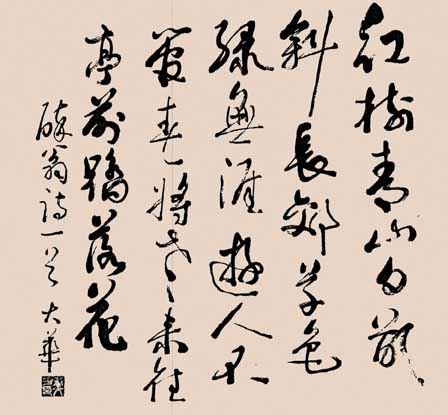 红树青山日欲
斜長郊草色
绿無涯遊人不
管春将老来往
亭前蹋落花
醉翁诗一首 大華